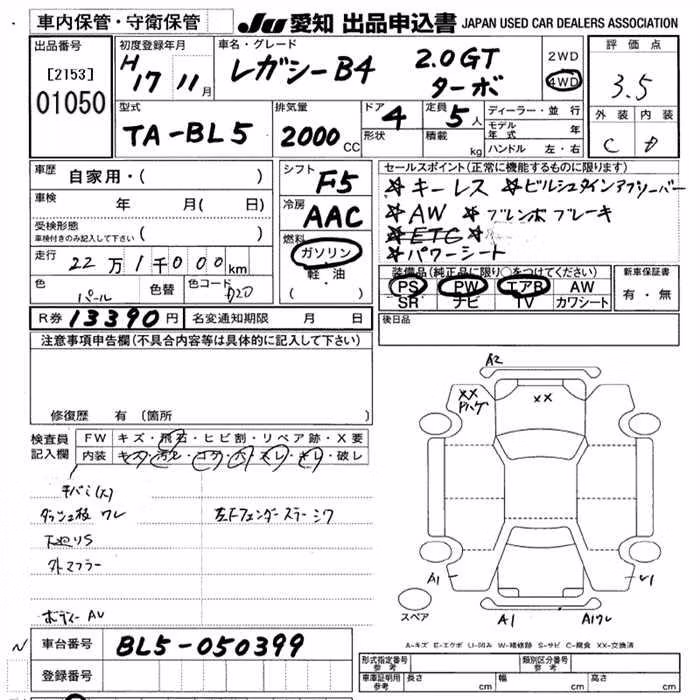 車内保管・守衛保管 JU 愛知 出品申込書 JAPAN USED CAR DEALERS ASSOCIATION
出品番号
[2153]
01050
初度登録年月
H 17 11月
車名・グレード
レガシーB4 2.0GT ターボ
2WD
4WD
評価点
3.5
外装 内装
C D
型式
TA-BL5
排気量
2000 CC
ドア 4
形状
定員 5人
積載 kg
ディーラー・並行
モデル年式 年
ハンドル 左・右
車歴
自家用・( )
車検 年 月( 日)
受検形態
車検付きのみ記入して下さい ( )
走行 22万1千000km
色 パール
色替
色コード D20
シフト
F5
冷房
AAC
燃料
ガソリン
軽・油
( )
セールスポイント(正常に機能するものに限ります)
☆キーレス ☆ビルシュタインアブソーバー
☆AW ☆ブレンボブレーキ
☆ETC ☆
☆パワーシート
装備品(純正品に限り○をつけてください)
PS PW エアB AW
SR ナビ TV カワシート
新車保証書
有・無
後日品
R券 13390円 名変通知期限 月 日
注意事項申告欄(不具合内容等は具体的に記入して下さい)
修復歴 有(箇所 )
検査員記入欄
FW キズ・飛石・ヒビ割・リペア跡・X要
内装 キズ・汚レ・コゲ・穴・スレ・キレ・破レ
チバミ(大)
ダッシュ板 ワレ 左Fフェンダーステーシワ
下廻りS
外マフラー
ボディーAU
A2
XX
Pハゲ
XX
A1
U1
スペア
A1 A1ワレ
A-キズ E-エクボ U-凹み W-補修跡 S-サビ C-腐食 XX-交換済
車台番号 BL5-050399
登録番号
形式指定番号 参考
類別区分番号 参考
車庫証明用 参考 長さ cm 幅 cm 高さ cm